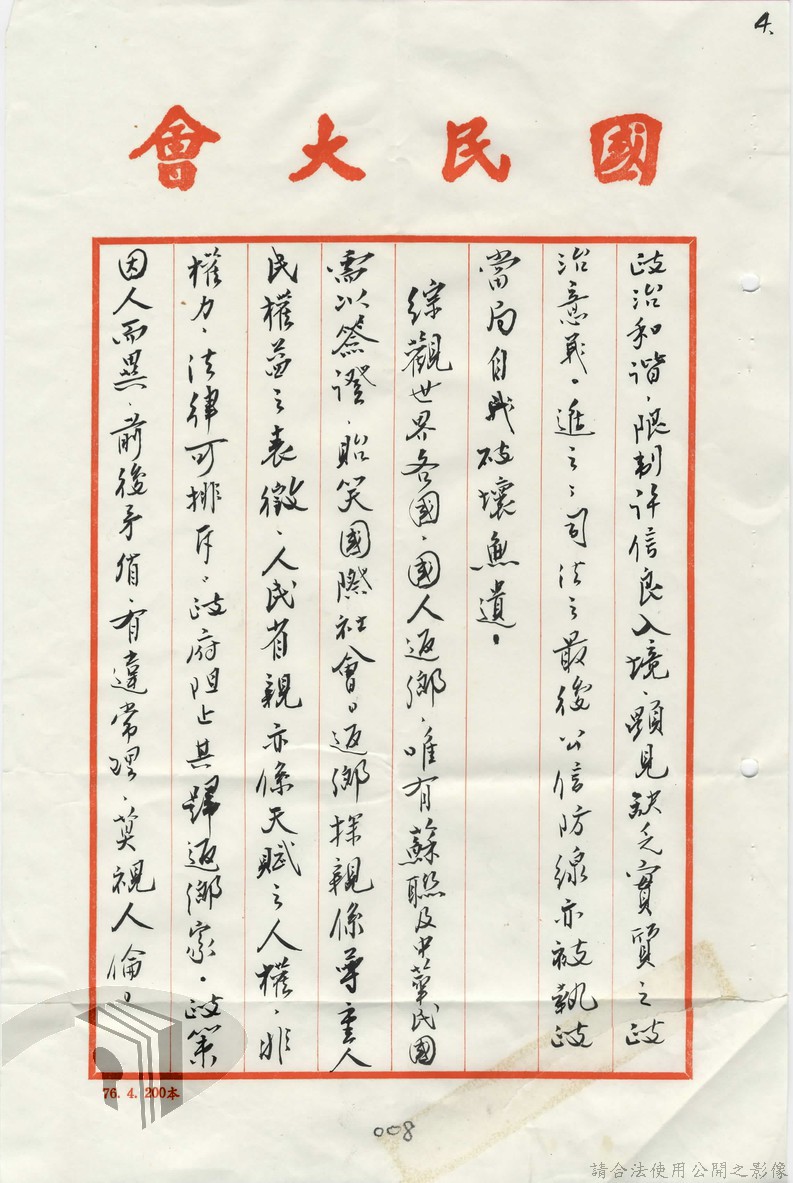 4.
國民大會
政治和諧，限制許信良入境，顯見缺乏實質之政
治意義。進之，司法之最後公信防線亦被執政
當局自我破壞無遺。
綜觀世界各國，國人返鄉，唯有蘇聯及中華民國
需以簽證，貽笑國際社會。返鄉探親係尊重人
民權益之表徵，人民省親亦係天賦之人權，非
權力、法律可排斥。政府阻止其歸返鄉家。政策
因人而異，前後矛盾，有違常理，莫視人倫。
76. 4. 200本
008
請合法使用公開之影像